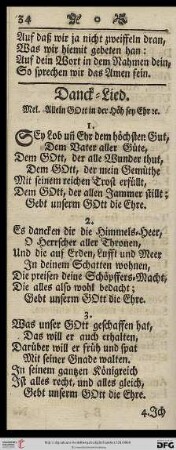 34
Auf daß wir ja nicht zweiffeln dran,
Was wir hiemit gebeten han:
Auf dein Wort in dem Nahmen dein,
So sprechen wir das Amen fein.
Danck-Lied.
Mel. Allein GOtt in der Höh sey Ehr ꝛc.
1.
SEy Lob uñ Ehr dem höchsten Gut,
Dem Vater aller Güte,
Dem GOtt, der alle Wunder thut,
Dem GOtt, der mein Gemüthe
Mit seinem reichen Trost erfüllt,
Dem GOtt, der allen Jammer stillt;
Gebt unserm GOtt die Ehre.
2.
Es dancken dir die Himmels-Heer,
O Herrscher aller Thronen,
Und die auf Erden, Lufft und Meer
In deinem Schatten wohnen,
Die preisen deine Schöpffers-Macht,
Die alles also wohl bedacht;
Gebt unserm GOtt die Ehre.
3.
Was unser GOtt geschaffen hat,
Das will er auch erhalten,
Darüber will er früh und spat
Mit seiner Gnade walten.
In seinem gantzen Königreich
Ist alles recht, und alles gleich,
Gebt unserm GOtt die Ehre.
4. Ich
DFG